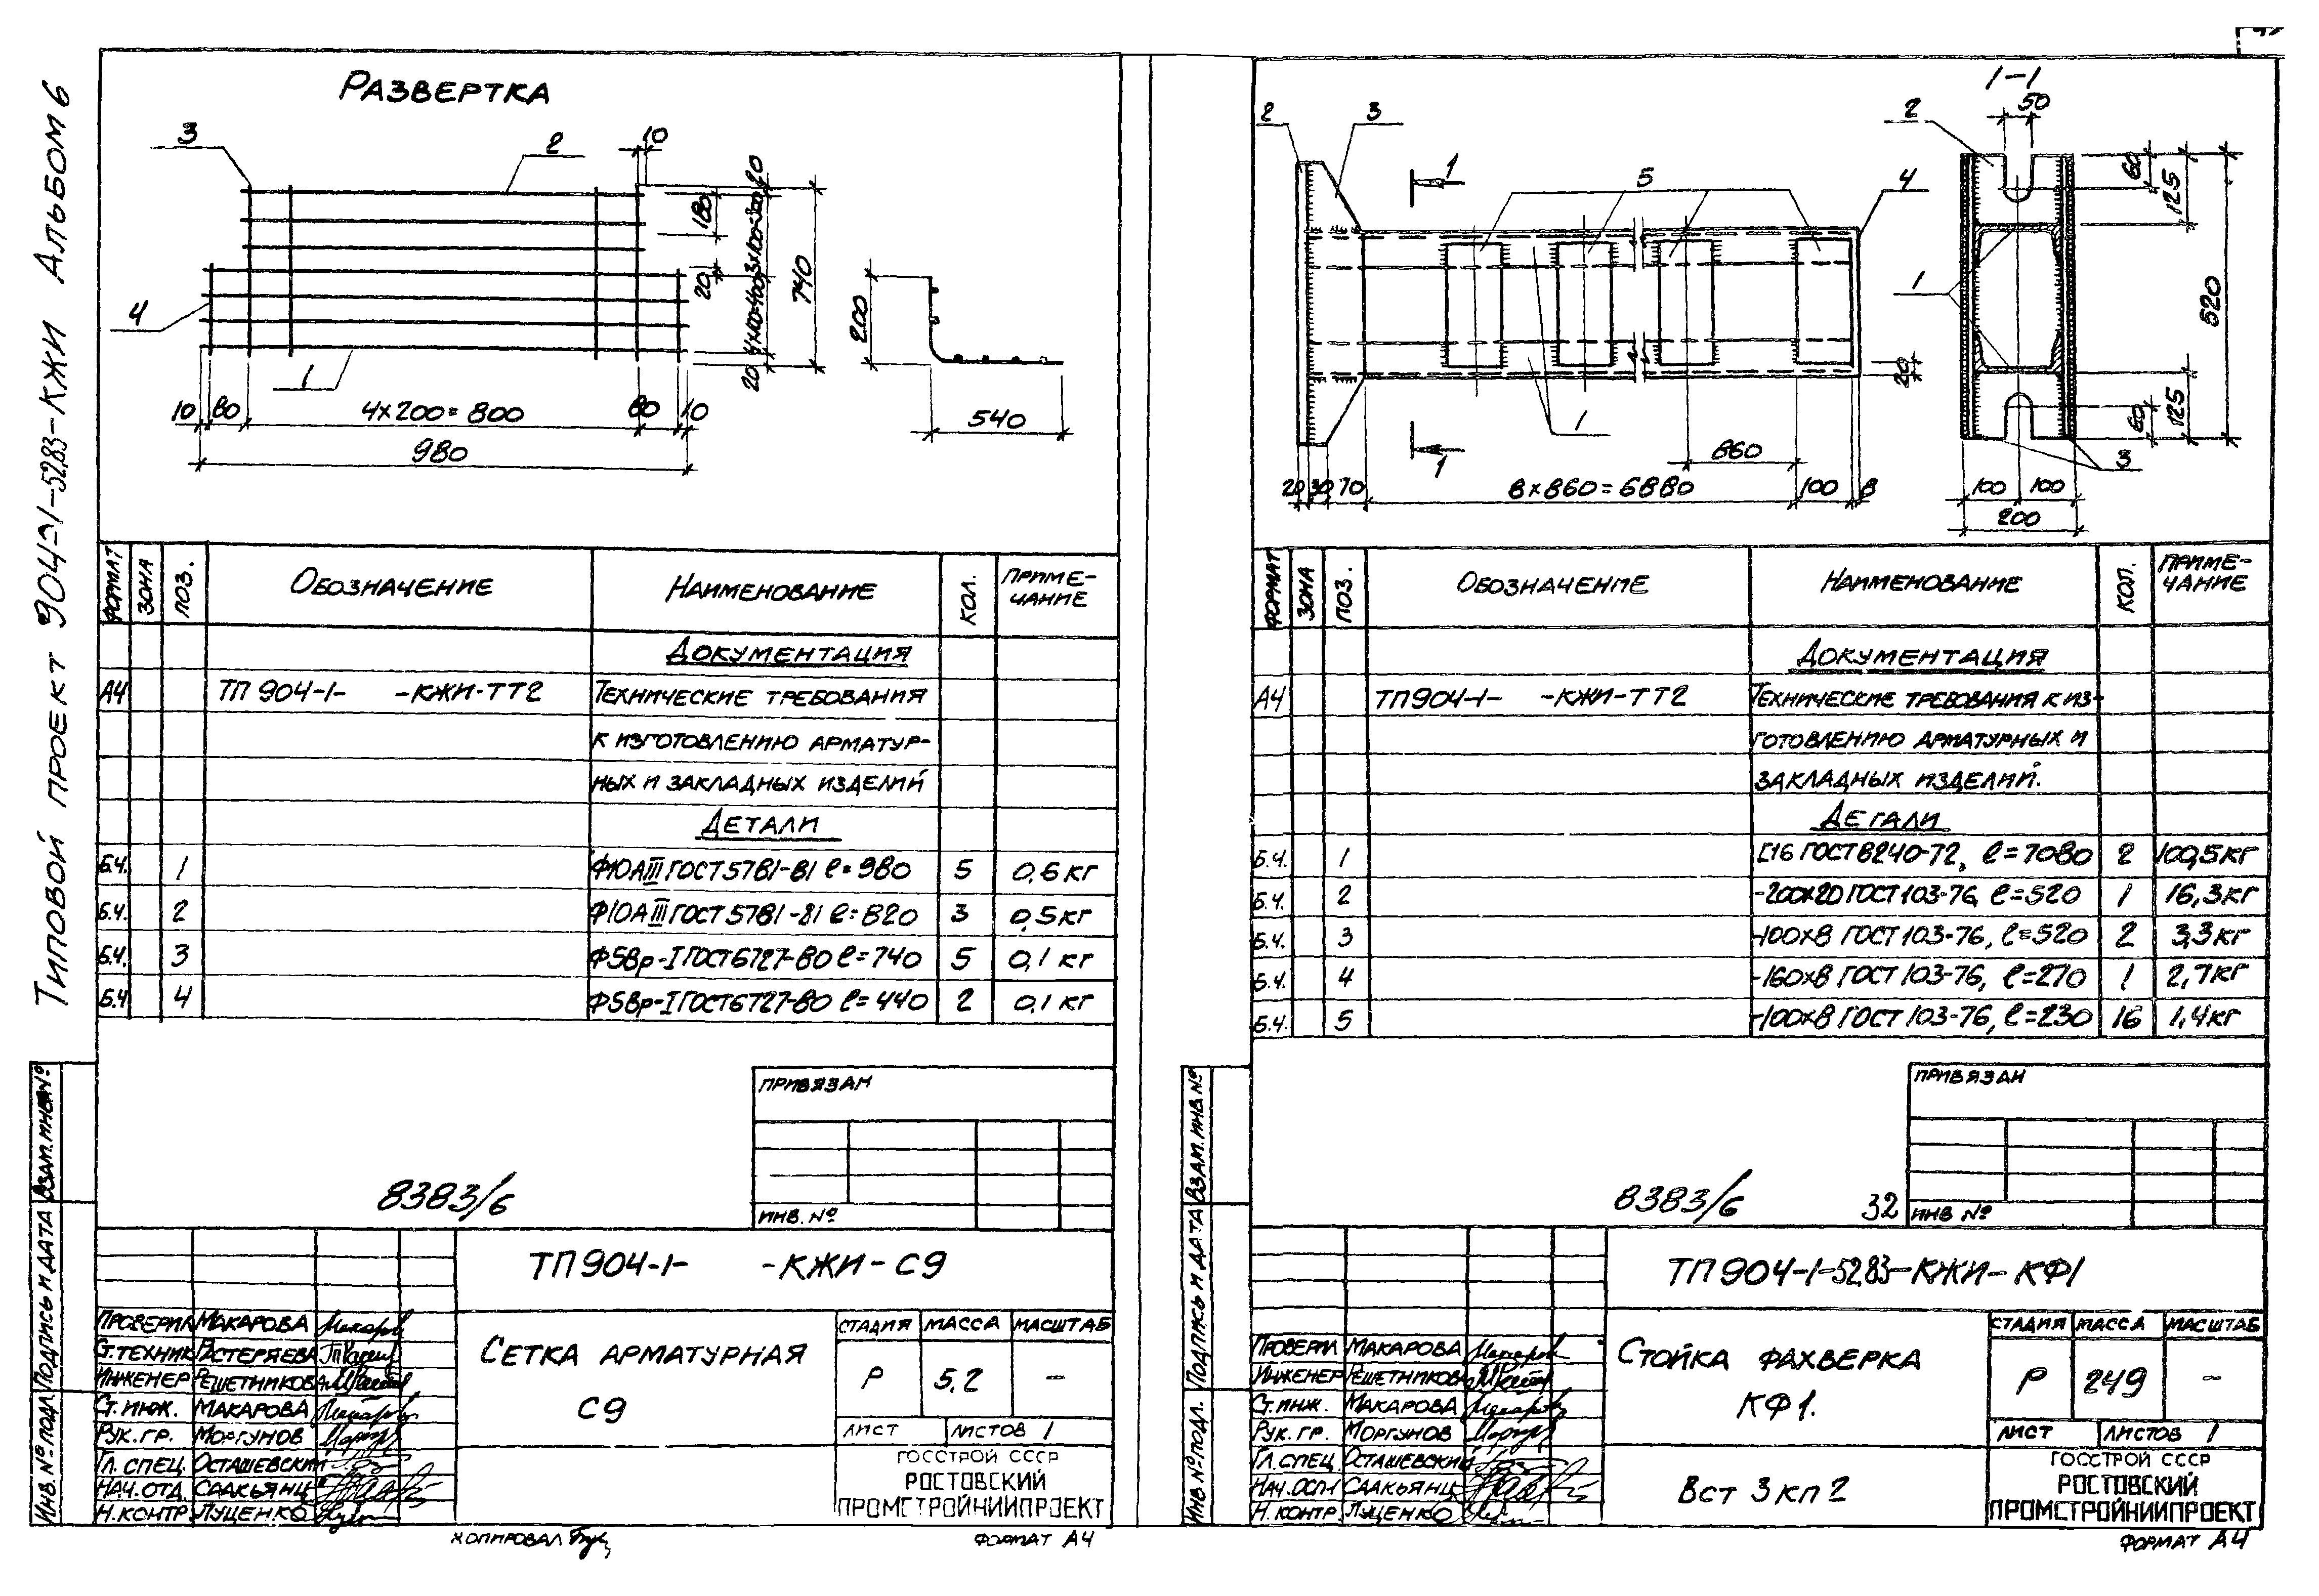 Типовой проект 904-1-52.83-КЖИ Альбом 6
РАЗВЕРТКА
3
2
10
20
180
3х100=300
740
4
20
4х100=400
20
1
10 80 4х200=800 80 10
980
200
540
ФОРМАТ ЗОНА ПОЗ. ОБОЗНАЧЕНИЕ НАИМЕНОВАНИЕ КОЛ. ПРИМЕ-
ЧАНИЕ
ДОКУМЕНТАЦИЯ
А4 ТП 904-1- -КЖИ-ТТ2 ТЕХНИЧЕСКИЕ ТРЕБОВАНИЯ
К ИЗГОТОВЛЕНИЮ АРМАТУР-
НЫХ И ЗАКЛАДНЫХ ИЗДЕЛИЙ
ДЕТАЛИ
Б.Ч. 1 Ф10АIII ГОСТ 5781-81 ℓ=980 5 0,6 кг
Б.Ч. 2 Ф10АIII ГОСТ 5781-81 ℓ=820 3 0,5 кг
Б.Ч. 3 Ф5Вр-I ГОСТ 6727-80 ℓ=740 5 0,1 кг
Б.Ч 4 Ф5Вр-I ГОСТ 6727-80 ℓ=440 2 0,1 кг
ПРИВЯЗАН
ИНВ. №
8383/6
ТП 904-1- -КЖИ-С9
ПРОВЕРИЛ МАКАРОВА
СТ.ТЕХНИК РАСТЕРЯЕВА
ИНЖЕНЕР РЕШЕТНИКОВА
СТ. ИНЖ. МАКАРОВА
РУК. ГР. МОРГУНОВ
ГЛ. СПЕЦ. ОСТАШЕВСКИЙ
НАЧ. ОТД СААКЬЯНЦ
Н. КОНТР ЛУЦЕНКО
СЕТКА АРМАТУРНАЯ
С9
СТАДИЯ МАССА МАСШТАБ
Р 5,2 –
ЛИСТ ЛИСТОВ 1
ГОССТРОЙ СССР
РОСТОВСКИЙ
ПРОМСТРОЙНИИПРОЕКТ
ИНВ. № ПОДЛ ПОДПИСЬ И ДАТА ВЗАМ. ИНВ. №
КОПИРОВАЛ
ФОРМАТ А4
1-1
2 3 1 5 4
50
2
60
125
1
520
20
1
125
60
3
1
860
20 30 70 8х860=6880 100 8
100 100
200
ФОРМАТ ЗОНА ПОЗ. ОБОЗНАЧЕНИЕ НАИМЕНОВАНИЕ КОЛ. ПРИМЕ-
ЧАНИЕ
ДОКУМЕНТАЦИЯ
А4 ТП 904-1- -КЖИ-ТТ2 ТЕХНИЧЕСКИЕ ТРЕБОВАНИЯ К ИЗ-
ГОТОВЛЕНИЮ АРМАТУРНЫХ И
ЗАКЛАДНЫХ ИЗДЕЛИЙ.
ДЕТАЛИ
Б.Ч. 1 [16 ГОСТ 8240-72, ℓ=7080 2 100,5 кг
Б.Ч. 2 -200х20 ГОСТ 103-76, ℓ=520 1 16,3 кг
Б.Ч. 3 -100х8 ГОСТ 103-76, ℓ=520 2 3,3 кг
Б.Ч. 4 -160х8 ГОСТ 103-76, ℓ=270 1 2,7 кг
Б.Ч. 5 -100х8 ГОСТ 103-76, ℓ=230 16 1,4 кг
ПРИВЯЗАН
ИНВ №
8383/6 32
ТП 904-1-52.83-КЖИ-КФ1
ПРОВЕРИЛ МАКАРОВА
ИНЖЕНЕР РЕШЕТНИКОВА
СТ. ИНЖ. МАКАРОВА
РУК. ГР. МОРГУНОВ
ГЛ. СПЕЦ. ОСТАШЕВСКИЙ
СААКЬЯНЦ
Н. КОНТР. ЛУЦЕНКО
СТОЙКА ФАХВЕРКА
КФ1.
СТАДИЯ МАССА МАСШТАБ
Р 249 –
ЛИСТ ЛИСТОВ 1
Вст 3 кп 2
ГОССТРОЙ СССР
РОСТОВСКИЙ
ПРОМСТРОЙНИИПРОЕКТ
ИНВ № ПОДЛ. ПОДПИСЬ И ДАТА ВЗАМ. ИНВ. №
ФОРМАТ А4